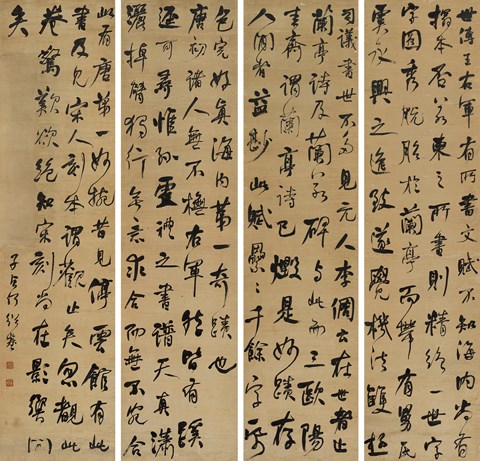 世傳王右軍有所書文賦不知海内尚有
搨本否若東之所書則精絕一世字
字圓秀脫胎於蘭亭而帶有舅氏
虞永興之遺致遂覺機法雙超
司議書世不多見元人李倜云在世者止
蘭亭詩及蘭若碑与此而三歐陽
圭齋謂蘭亭詩已燬是妙蹟存
人間者益尠此賦纍纍千餘字
色完好真海内第一奇蹟也
唐初諸人無不橅右軍然皆有蹊
逕可尋惟孫虔禮之書譜天真瀟
灑掉臂獨行無意求合而無不宛合
此有唐第一妙腕昔見停雲館有此
書及見宋人刻本謂觀止矣忽覩此
卷驚歎欲絕知宋刻尚在影響间
矣
子貞何紹基